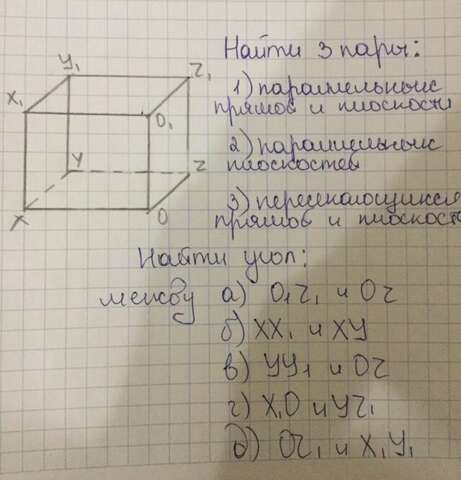 Найти 3 пары:
1) параллельныс
прямов и плоскости
2) параллельныс
плоскостей
3) пересекающихся
прямов и плоскост
Найти угол:
между а) O₁Z₁ и OZ
б) XX₁ и XY
в) YY₁ и OZ
г) X₁O и YZ₁
д) OZ₁ и X₁Y₁
Y₁
Z₁
X₁
O₁
Y
Z
X
O